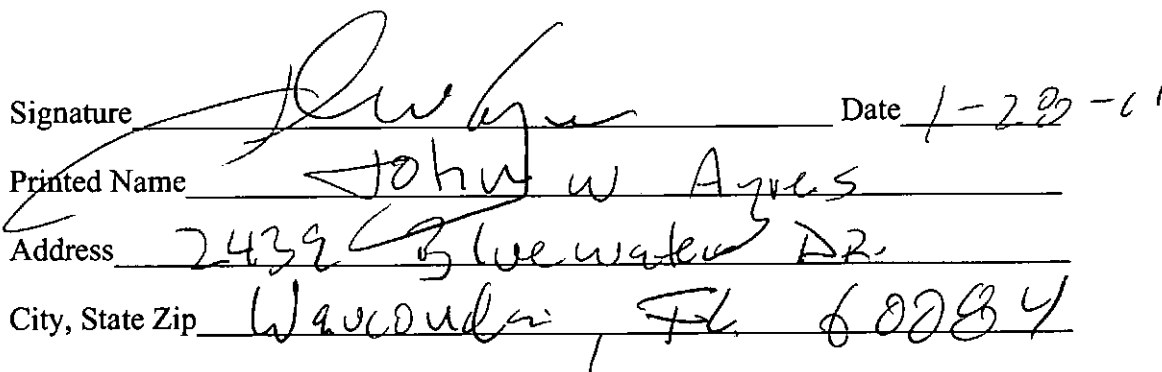 Signature Date 1-20-11
Printed Name John W Ayres
Address 2439 Bluewater DR.
City, State Zip Wauconda, IL 60084